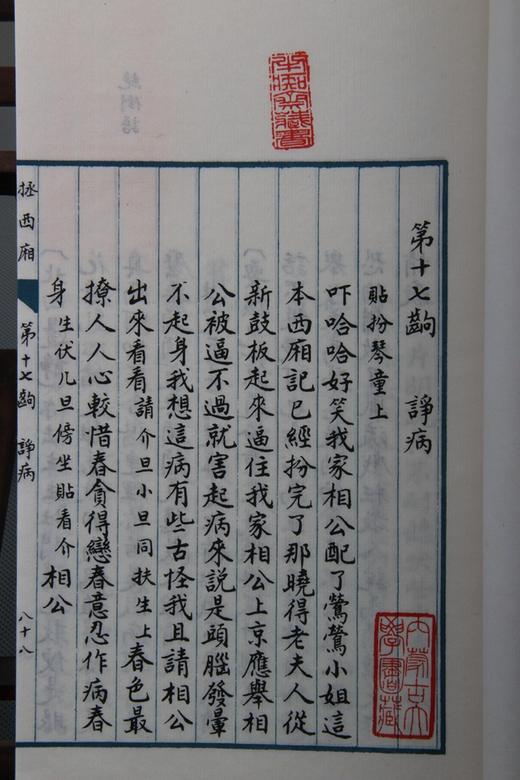 第十七齣 諍病
貼扮琴童上
吓哈哈好笑我家相公配了鶯鶯小姐這
本西廂記已經扮完了那曉得老夫人從
新鼓板起來逼住我家相公上京應舉相
公被逼不過就害起病來說是頭腦發暈
不起身我想這病有些古怪我且請相公
出來看看請介旦小旦同扶生上春色最
撩人人心較惜春貪得戀春意忍作病春
身生伏几旦傍坐貼看介相公
拯西廂 第十七齣 諍病 八十八